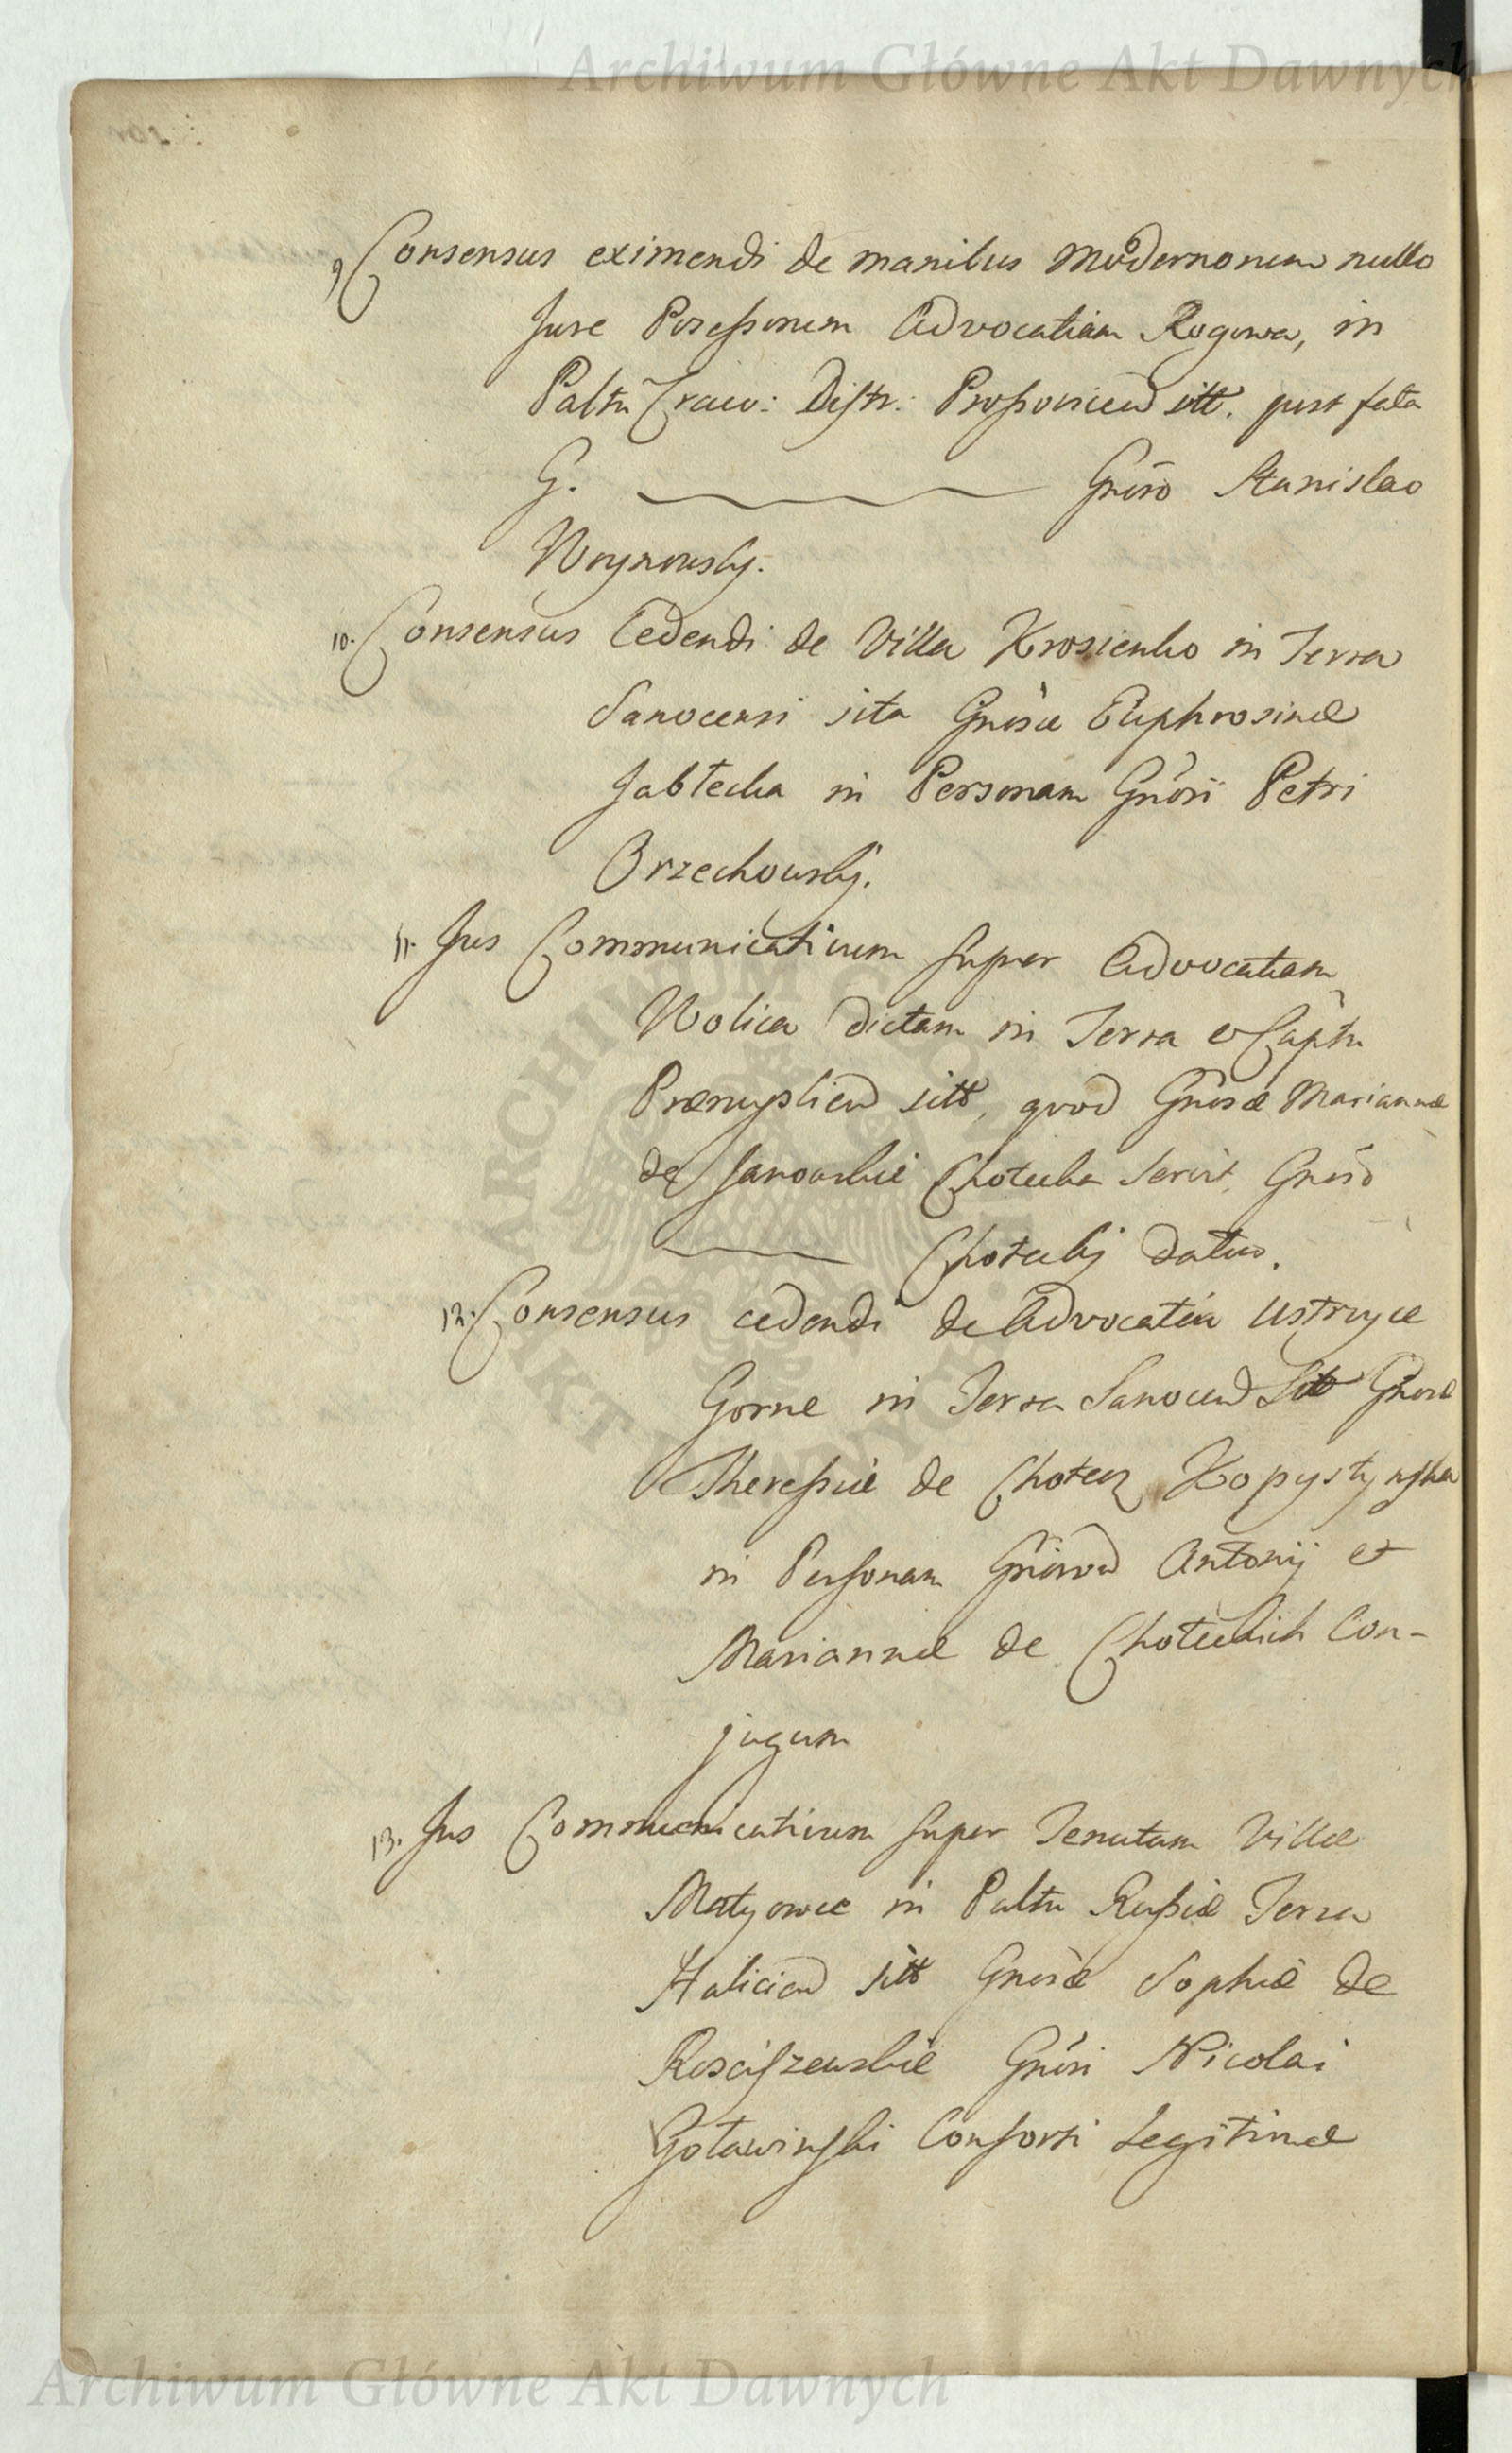 Archiwum Główne Akt Dawnych
9 Consensus eximendi de manibus Modernorum nullo
Jure Possessorum Advocatiam Rogowa, in
Palttu Cracov: Distr: Proszovicen sitt. post fata
G. Gnoso Stanislao
Woynowsky.
10. Consensus Cedendi de Villa Krosienko in Terra
Sanocensi sita Gnosae Euphrosinae
Jabłecka in Personam Gnosi Petri
Orzechowsky.
11. Jus Communicativum super Advocatiam
Wolica dictam in Terra et Capttu
Praemyslien sitt, quod Gnosae Mariannae
de Janowskie Chołecka servit, Gnoso
Chołecky datur.
12. Consensus cedendi de Advocatia Ustryce
Gorne in Terra Sanocen Sitt Gnosae
Theressiae de Chołecz Kopystynska
in Personam Gnosorum Antonij et
Mariannae de Chołeckich Con-
jugum
13. Jus Communicativum super Tenutam Villae
Matyowce in Palttu Russiae Terra
Halicien sitt Gnosae Sophiae de
Rosciszewskie Gnosi Nicolai
Goławinski Consorti Legitimae
ARCHIWUM GŁÓWNE AKT DAWNYCH
Archiwum Główne Akt Dawnych